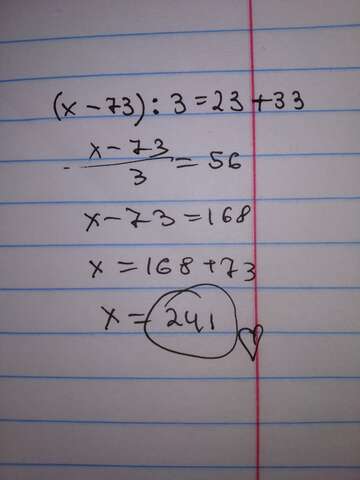 (x-73):3=23+33
x-73/3=56
x-73=168
x=168+73
x=241